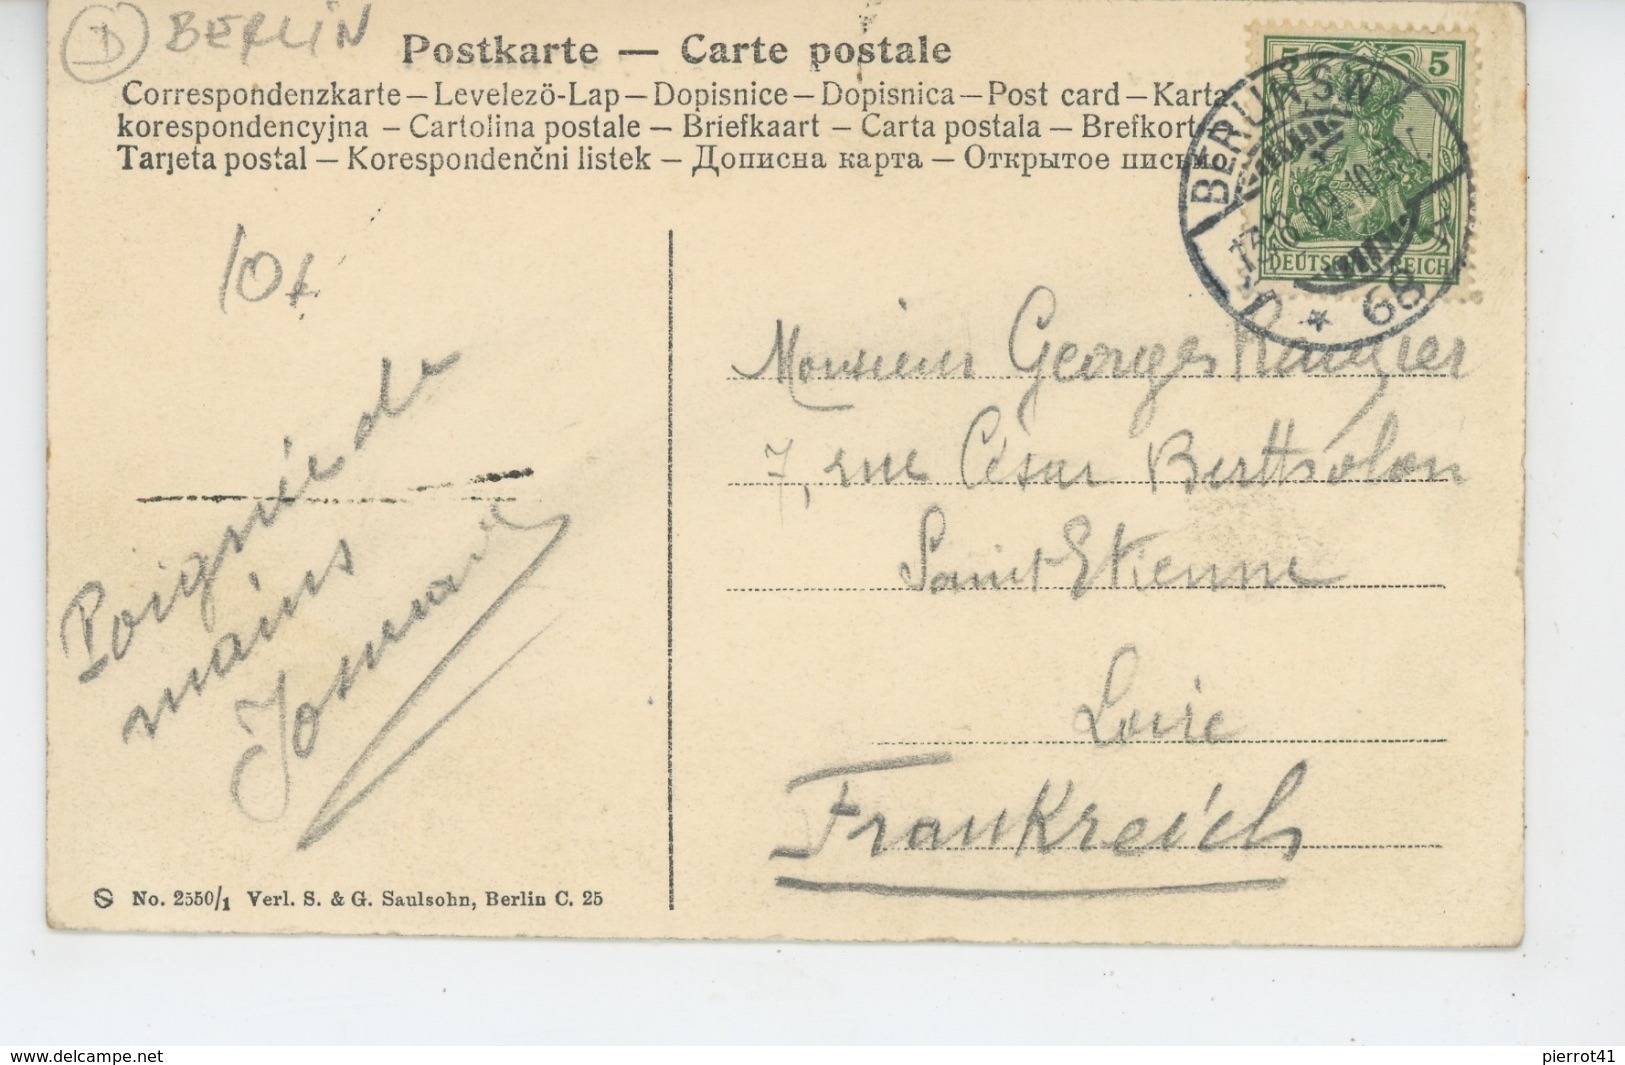 D BERLIN
Postkarte — Carte postale
Correspondenzkarte — Levelezö-Lap — Dopisnice — Dopisnica — Post card — Karta
korespondencyjna — Cartolina postale — Briefkaart — Carta postala — Brefkort
Tarjeta postal — Korespondenčni listek — Дописна карта — Открытое письмо
5 5
DEUTSCHES REICH
BERLIN SW
68
10f
Monsieur Georges
7, rue César Berttholon
Saint-Etienne
Loire
Frankreich
Poignée de
mains
No. 2550/1 Verl. S. & G. Saulsohn, Berlin C. 25
www.delcampe.net
pierrot41